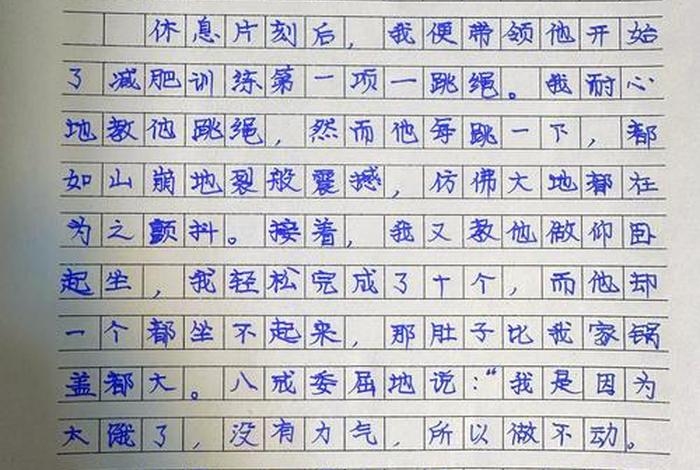 休息片刻后，我便带领他开始
了减肥训练第一项一跳绳。我耐心
地教他跳绳，然而他每跳一下，都
如山崩地裂般震撼，仿佛大地都在
为之颤抖。接着，我又教他做仰卧
起坐，我轻松完成了十个，而他却
一个都坐不起来，那肚子比我家锅
盖都大。八戒委屈地说：“我是因为
太饿了，没有力气，所以做不动。